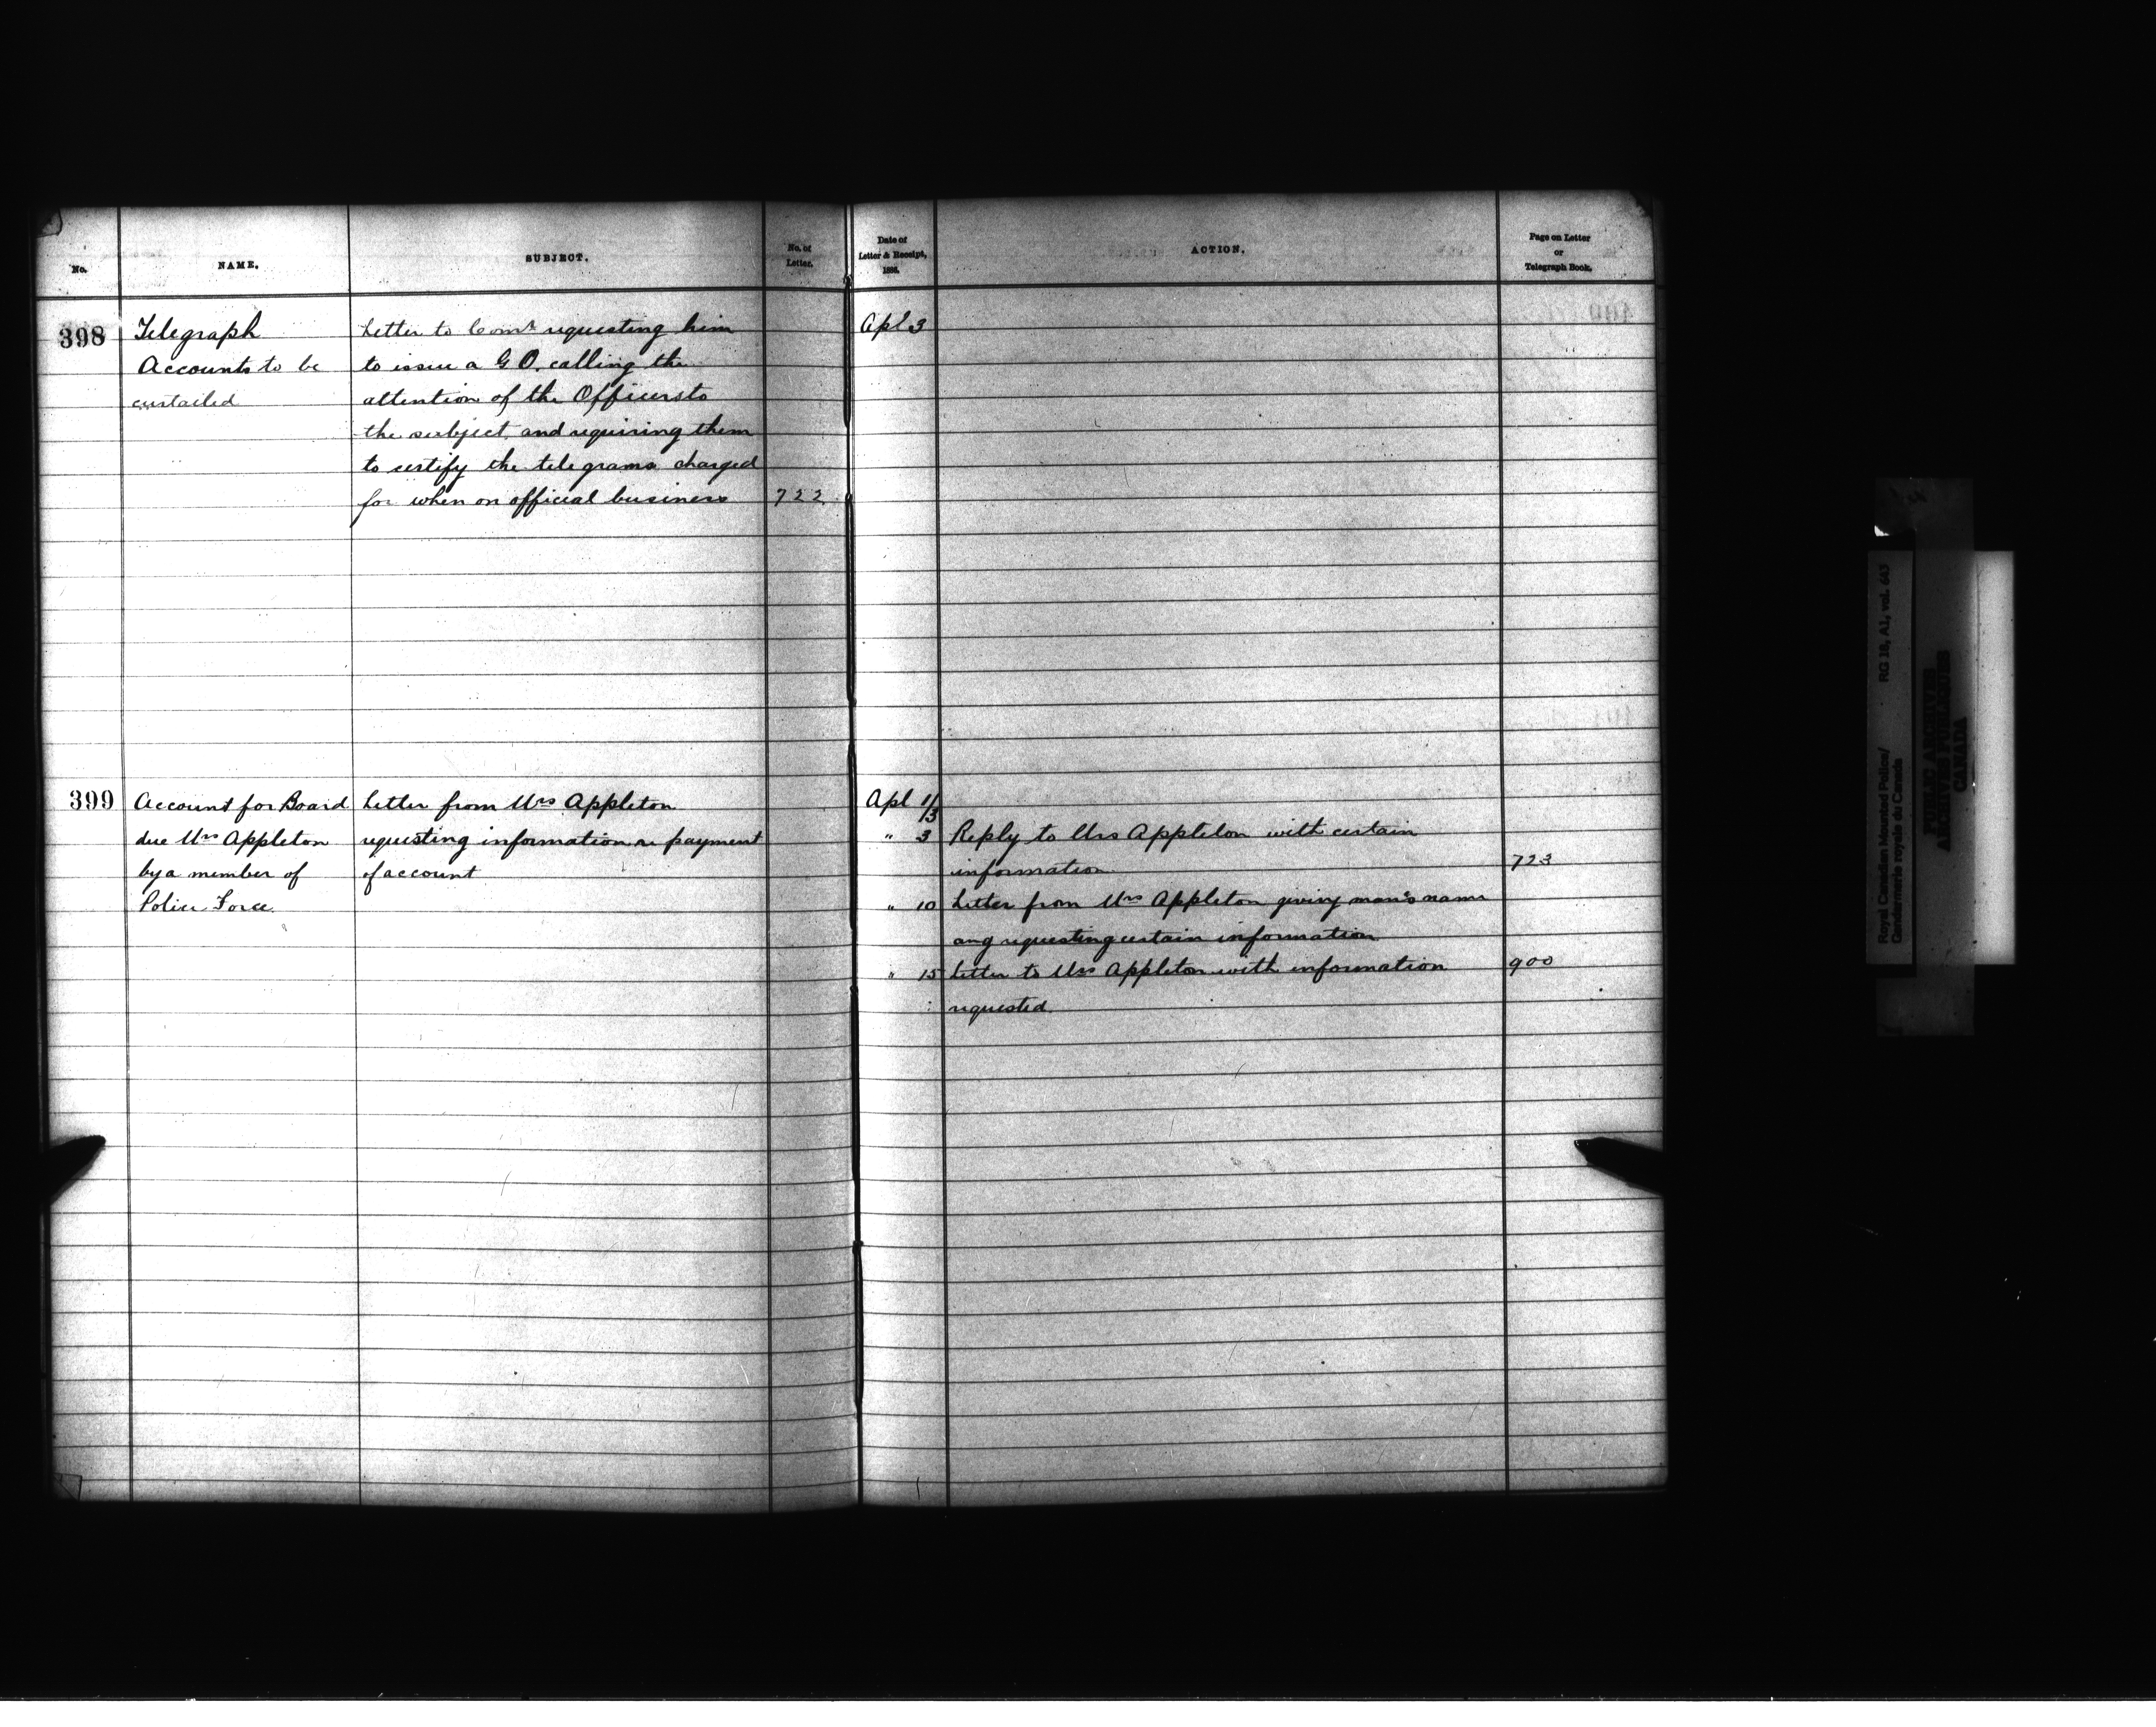 No.
NAME.
SUBJECT.
No. of
Letter.
398
Telegraph
Accounts to be
curtailed
Letter to Comr requesting him
to issue a G O. calling the
attention of the Officers to
the subject, and requiring them
to certify the telegrams charged
for when on official business
722
399
Account for Board
due Mrs Appleton
by a member of
Police Force.
Letter from Mrs Appleton
requesting information re payment
of account
Date of
Letter & Receipt,
1886.
ACTION.
Page on Letter
or
Telegraph Book.
Apl 3
Apl 1/3
" 3 Reply to Mrs Appleton with certain
information. 723
" 10 Letter from Mrs Appleton giving man's name
ang requesting certain information
" 15 Letter to Mrs Appleton with information 900
requested.
Royal Canadian Mounted Police/ RG 18, A1, vol. 643
Gendarmerie royale du Canada
PUBLIC ARCHIVES
ARCHIVES PUBLIQUES
CANADA